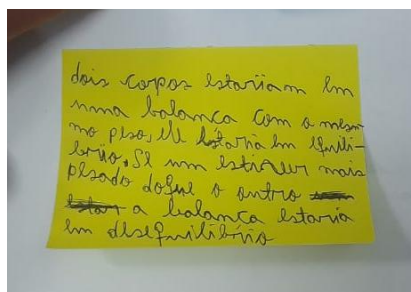 dois corpos estariam em
uma balanca com o mesm-
mo peso, ele estaria em equili-
brio, se um estiver mais
pesado doque o outro
a balanca estaria
em desequilibrio